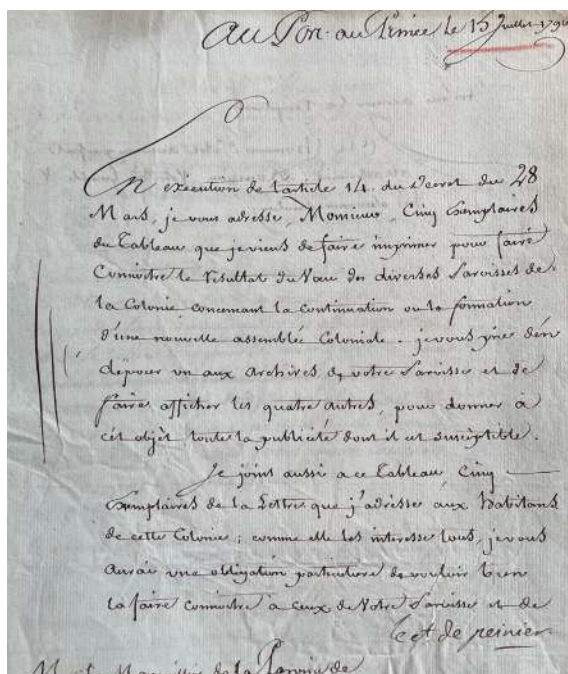 Au Port-au-Prince le 15 Juillet 1790
En execution de l'article 14. du Decret du 28
Mars, je vous adresse, Monsieur, Cinq Exemplaires
du Tableau que je viens de faire imprimer pour faire
Connoitre le résultat du Vœu des diverses Paroisses de
la Colonie concernant la continuation ou la formation
d'une nouvelle assemblée Coloniale. je vous prie d'en
déposer un aux archives de votre Paroisse et de
faire afficher les quatre autres, pour donner à
cét objèt toute la publicité dont il est susceptible.
Je joint aussi a ce Tableau, Cinq
Exemplaires de la Lettre que j'adresse aux habitans
de cette Colonie; comme elle les interesse tous, je vous
aurai une obligation particuliere de vouloir bien
la faire connoitre à ceux de Votre Paroisse et de
Le Ct. de peinier
de la Paroisse de